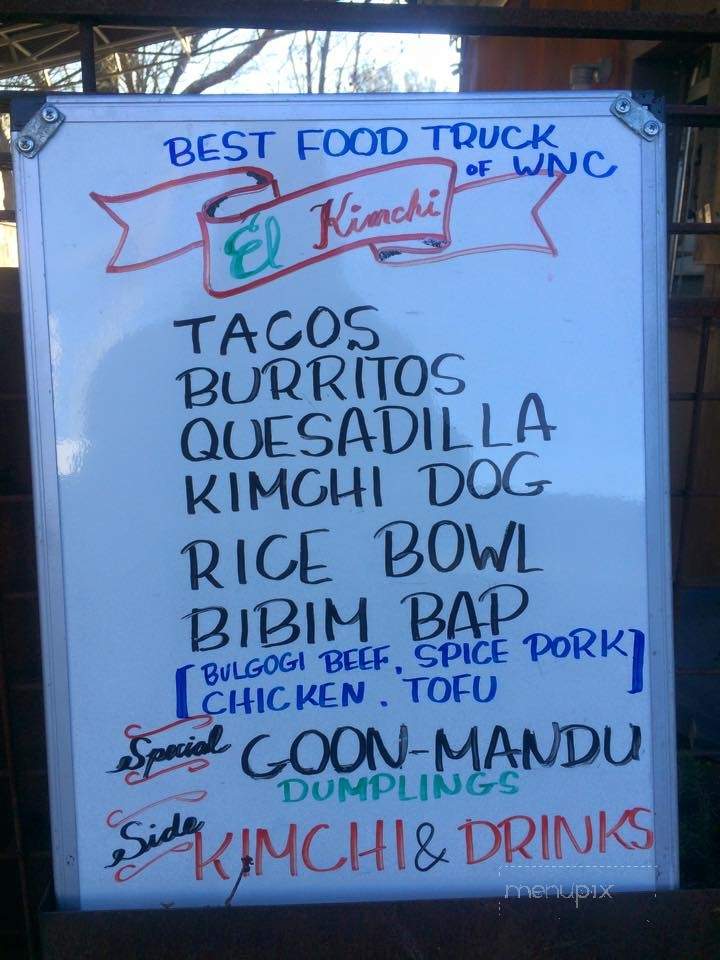 BEST FOOD TRUCK
OF WNC
El Kimchi
TACOS
BURRITOS
QUESADILLA
KIMCHI DOG
RICE BOWL
BIBIM BAP
[BULGOGI BEEF, SPICE PORK
CHICKEN. TOFU]
Special GOON-MANDU
DUMPLINGS
Side KIMCHI & DRINKS
menupix